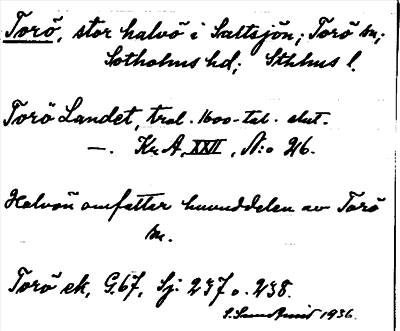 Torö, stor halvö i Saltsjön; Torö sn;
Sotholms hd; Sthlms l.
Torö Landet, trol. 1600-tal. slut.
—. Kr. A, XXVI, N:o 26.
Halvön omfattar huvuddelen av Torö
sn.
Torö ek, G.67, Sj. 237 o. 238.
1936.